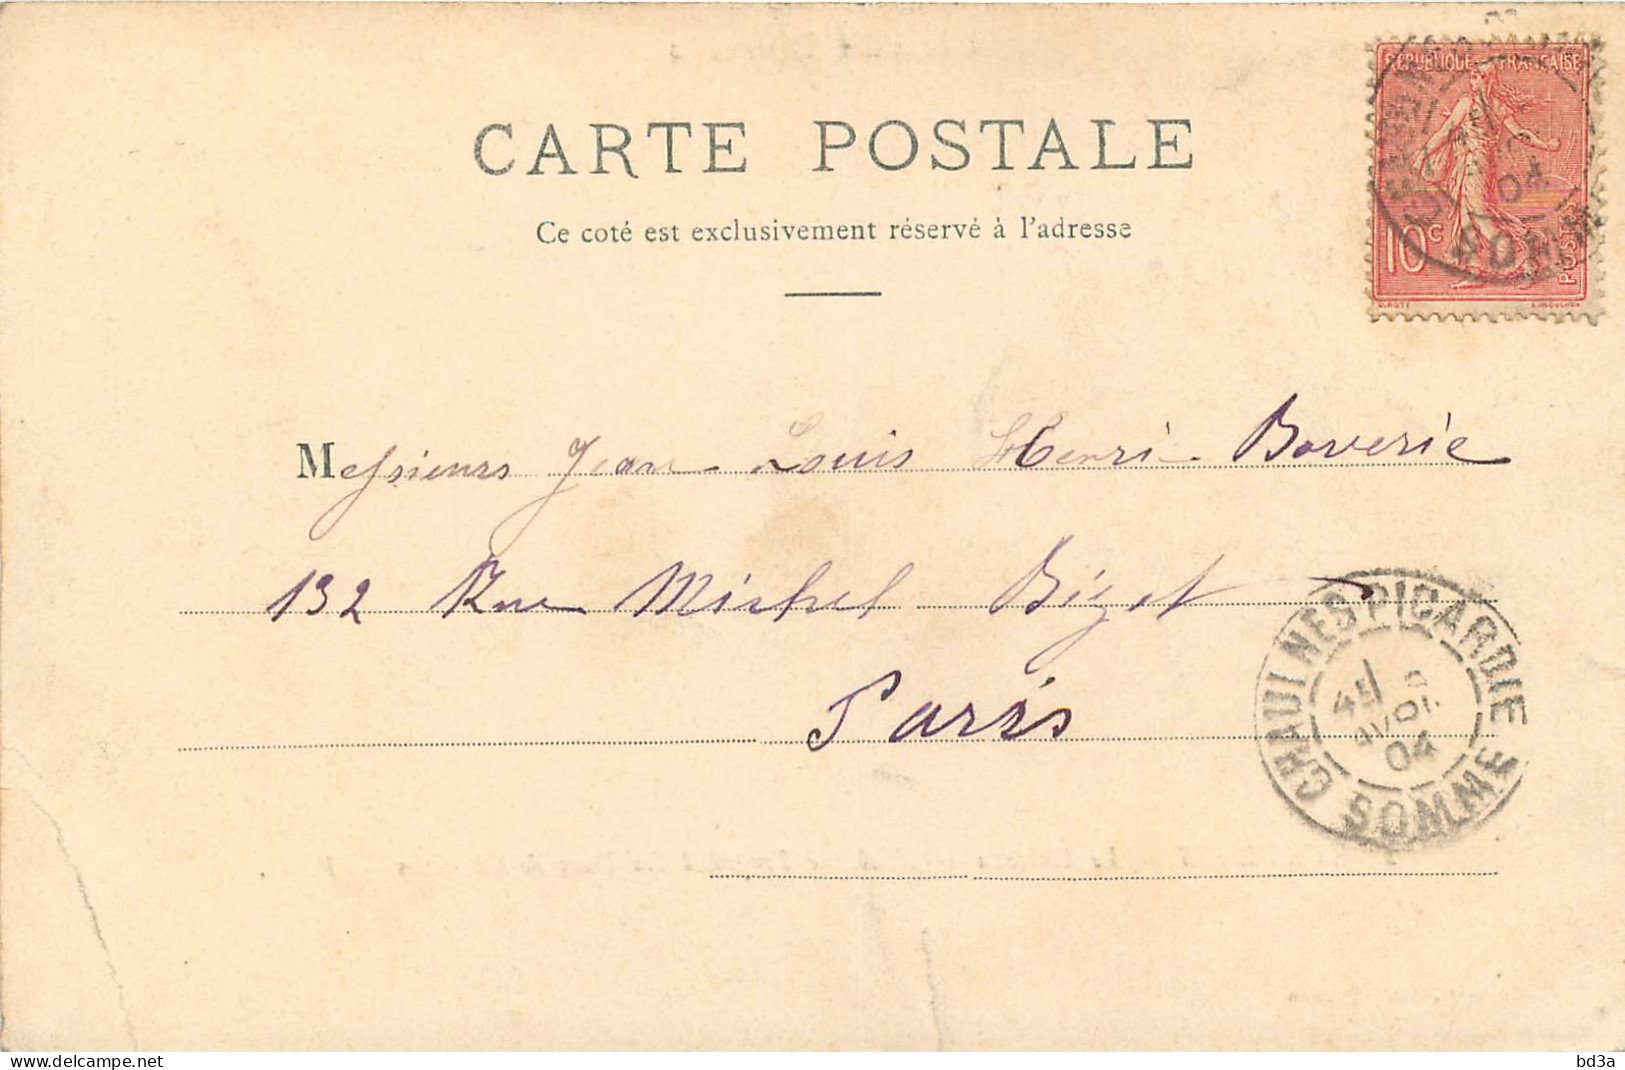 CARTE POSTALE
Ce coté est exclusivement réservé à l'adresse
REPUBLIQUE FRANÇAISE
10c POSTES
O. ROTY
E. MOUCHON
04
SOMME
Messieurs Jean Louis Henri Boverie
132 Rue Michel Bizot
Paris
CHAULNES PICARDIE
AVRIL
04
SOMME
delcampe.net
bd3a